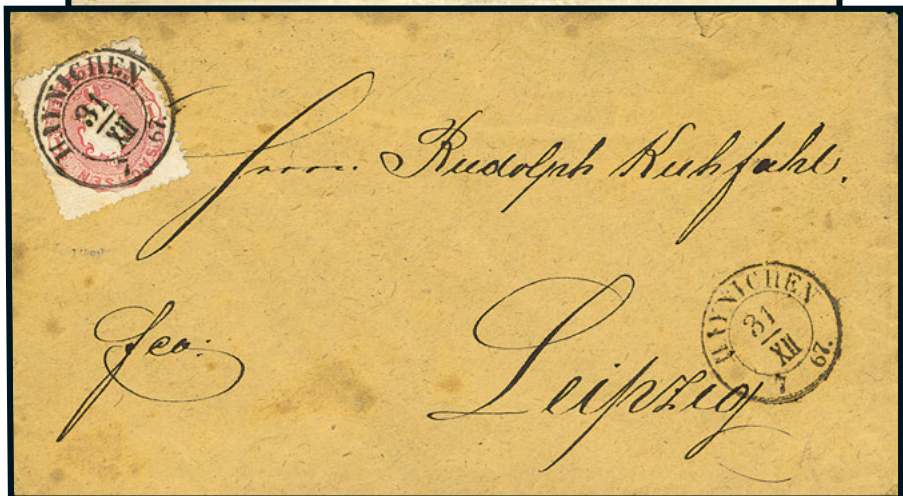 HAYNICHEN
31
XII
7
67.
SACHSEN
Herrn Rudolph Kuhfahl.
fco.
Leipzig
HAYNICHEN
31
XII
7
67.